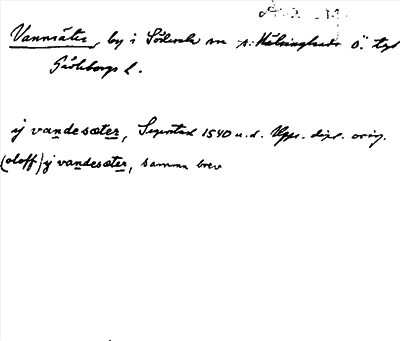 Vannsäter, by i Söderala sn s. Hälsinglands ö. tgl
Gävleborgs l.
ij vandesæter, 1540 u.d. Upps. dipl. orig.
(oloff) ij vandesæter, samma brev